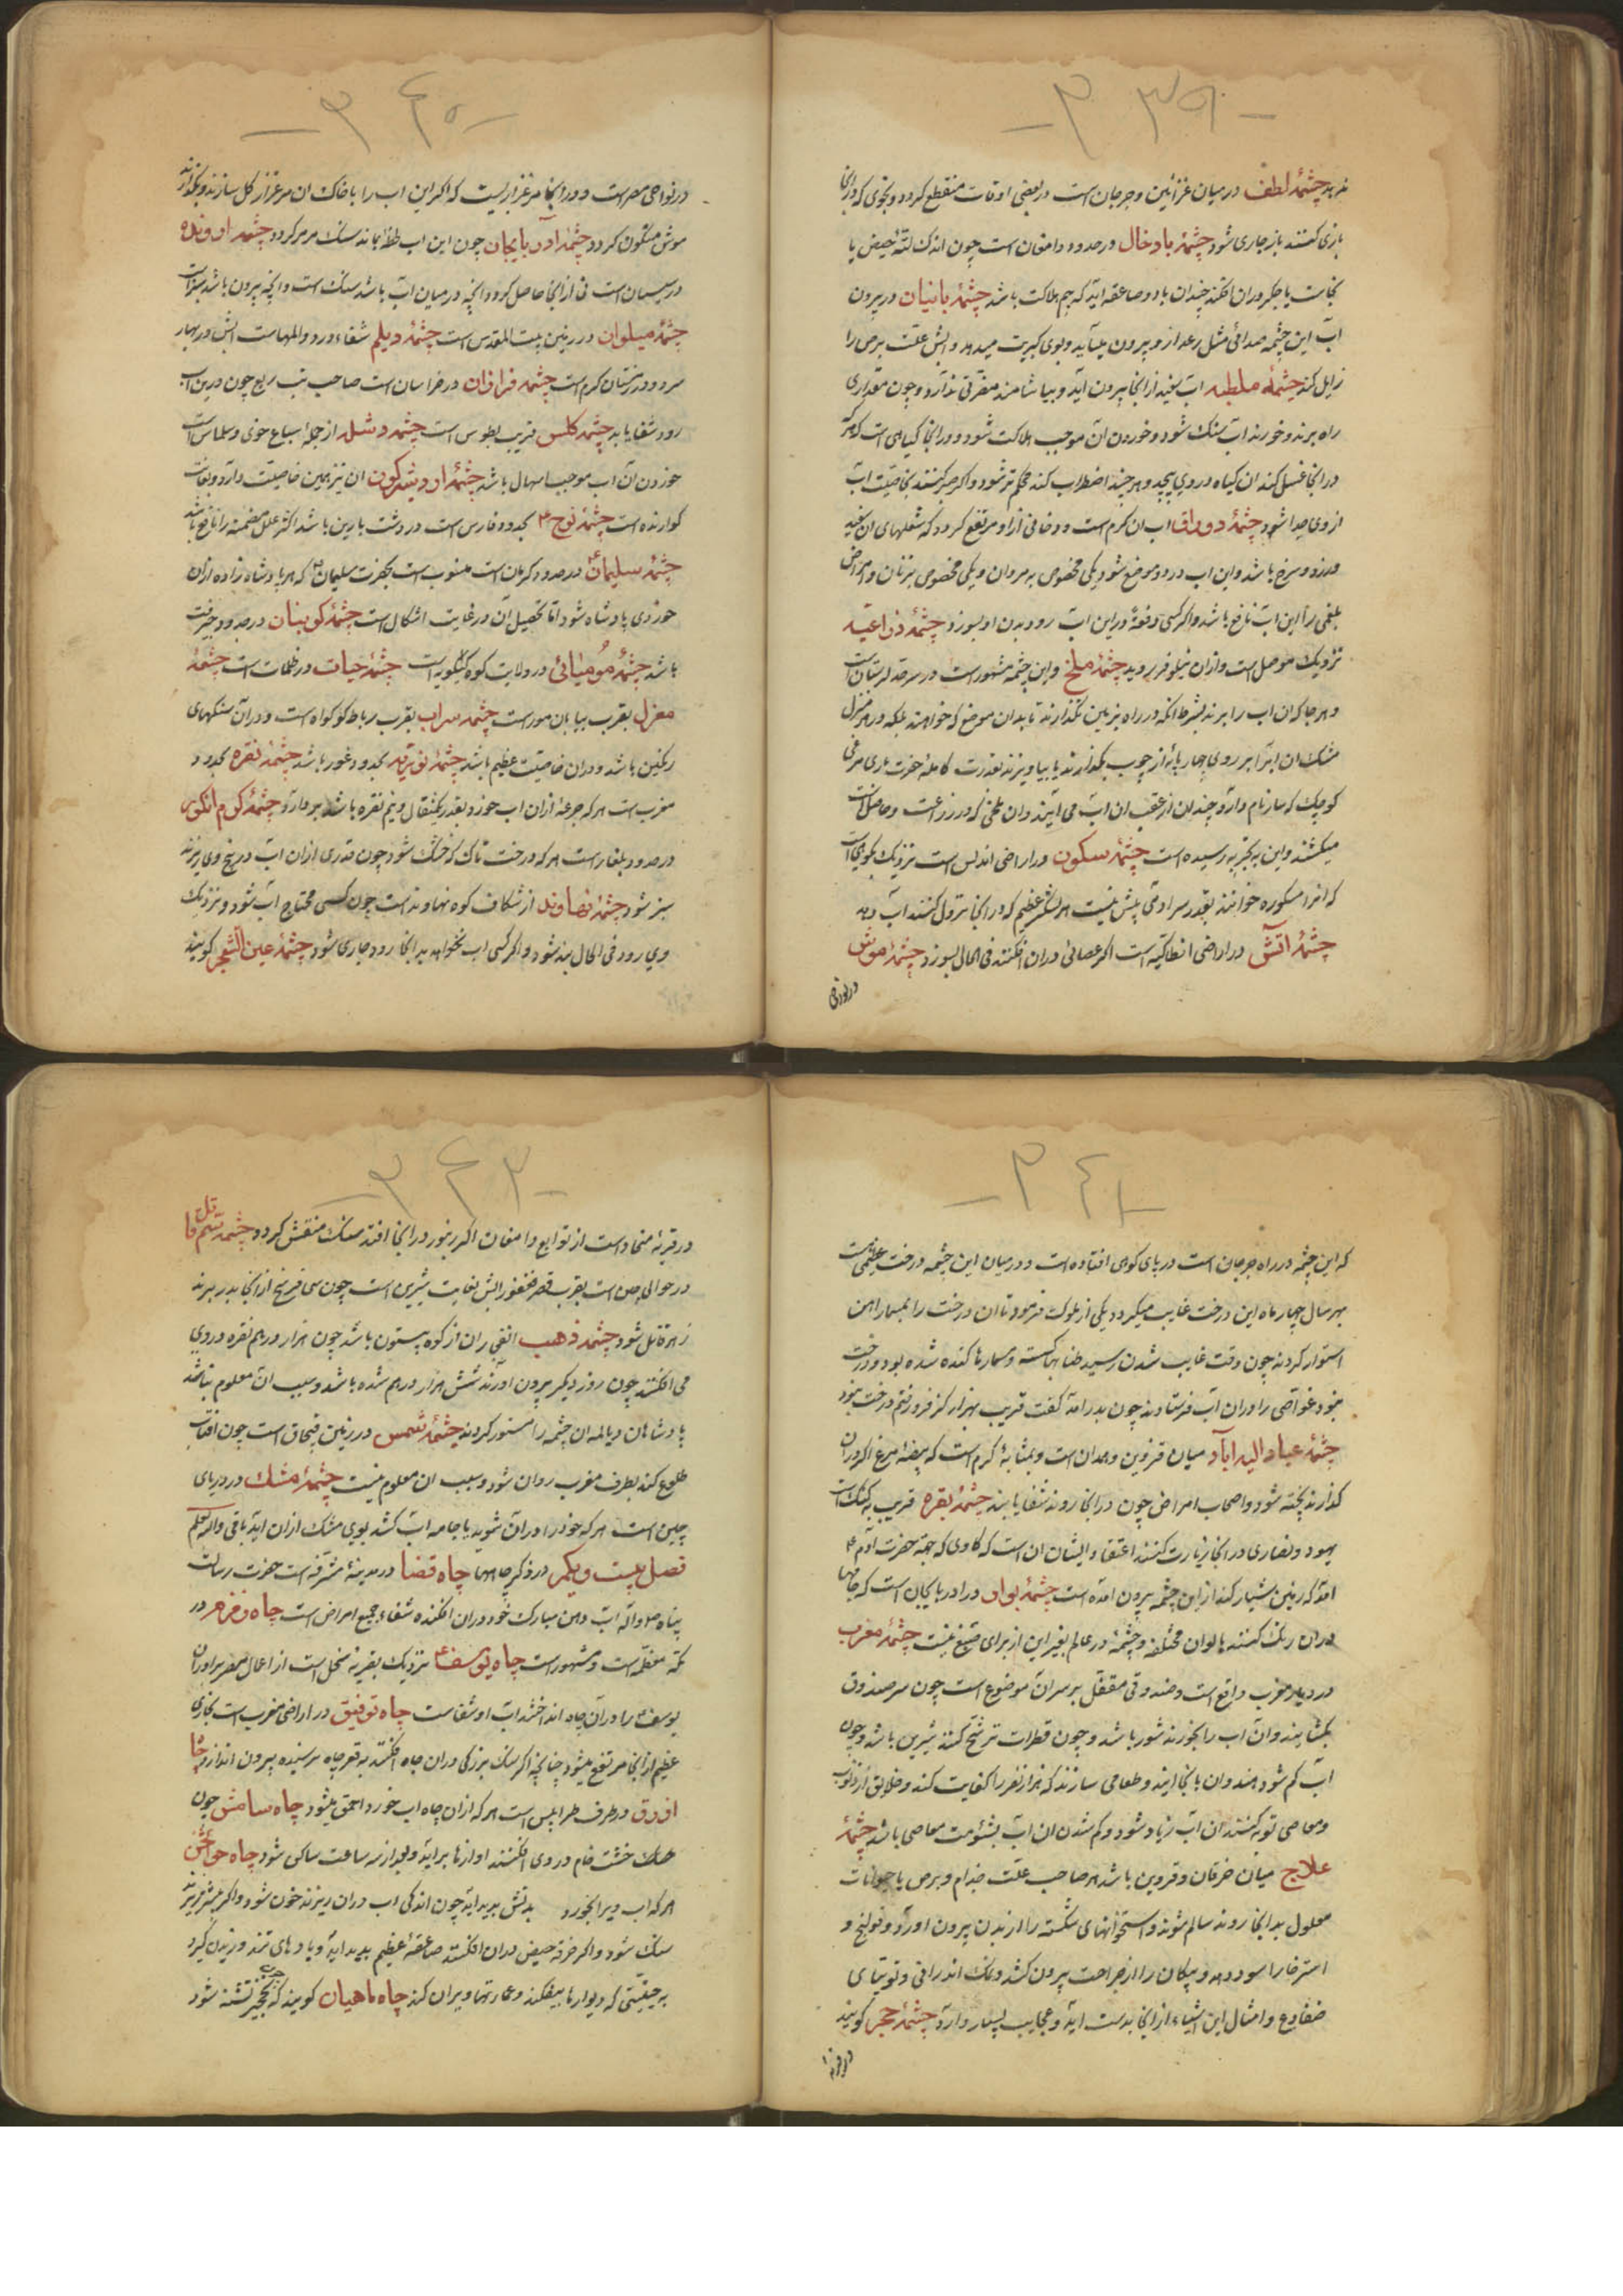 ۳۳۹
ندهد چشمهٔ لطف در میان غزائین و جرجان است در بعضی اوقات منقطع کردد و بخوی که در انجا
بازی کنند باز جاری شود چشمهٔ بادخال در حدود دامغان است چون اندک لتهٔ حیض یا
نجاست یا جکر در ان افکنند چندان باد و صاعقه اید که بیم هلاکت باشد چشمهٔ بانیان در بیرون
آب این چشمه صدائی مثل رعد از و بیرون میآید و بوی کبریت میدهد و آبش علت برص را
زایل کند چشمهٔ ملطیه اب سفید از انجا بیرون آید و بیاشامند مضرتی ندارد و چون مقداری
راه برند و خورند اب سنک شود و خوردن آن موجب هلاکت شود و در انجا کیاهی است که هر که
در انجا غسل کند ان کیاه در وی پیچد و هر چند اضطراب کند محکم تر شود و اکر صبر کنند بخاصیت اب
از وی جدا شود چشمهٔ دوراق اب ان کرم است و دخانی از او مرتفع کردد که شعلهای ان سفید
و زرد و سرخ باشد و این اب در دو موضع شود یکی مخصوص به مردان و یکی مخصوص بزنان و امراض
بلغمی را این آب نافع باشد و اکر کسی دفعهٔ در این اب رود بدن او بسوزد چشمهٔ ذراعیه
نزدیک موصل است و از ان نیلوفر بروید چشمهٔ ملخ و این چشمه مشهور است در سرحد لرستان است
و هر جا که ان اب را برند بشرط انکه در راه بزمین نکذارند تا بدان موضع که خواهند بلکه در هر منزل
مشک ان اب را بر روی چهار پایهٔ از چوب بکذارند یا بیاویزند بقدرت کامله حضرت باری مرغی
کوچک که سار نام دارد چندان از عقب ان اب می آیند و ان ملخی که در زراعت و حاصل است
میکشند و این به تجربه رسیده است چشمهٔ سکون در اراضی اندلس است نزدیک بکوهی است
که انرا مسکوره خوانند بقدر سراد می بیش نیست هر لشکر عظیم که در انجا نزول کنند اب دهد
چشمهٔ اتش در اراضی انطاکیه است اکر عصائی در ان افکنند فی الحال بسوزد چشمهٔ موش
در نواحی
۳۴۰
در نواحی مصر است و در انجا مرغزاریست که اکر این اب را با خاک ان مرغزار کل سازند و بکذارند
موش متکون کردد چشمهٔ اذربایجان چون این اب لحظهٔ بماند سنک مرمر کردد چشمه اروندة
در سیستان است نی از انجا حاصل کردد انچه در میان آب باشد سنک است و انچه بیرون باشد نی است
چشمهٔ میلوان در زمین بیت المقدس است چشمهٔ دیلم شفاء درد و المهاست ابش در بهار
سرد و در زمستان کرم است چشمه فراوان در خراسان است صاحب تب ربع چون در ین اب
رود شفا یابد چشمه کلس قریب بطوس است چشمه دشله از جمله سباع خوی و سلماس است
خوردن آن اب موجب اسهال باشد چشمهٔ اردیشکون ان نیز همین خاصیت دارد و بغایت
کوارنده است چشمهٔ نوح ع بحدود فارس است در دشت بارین باشد اکثر علل مضمنه را نافع باشد
چشمهٔ سلیمان ع در حدود کرمان است منسوب است بحضرت سلیمان ع که هر پادشاه زاده از ان
خوردی پادشاه شود اما تحصیل آن در غایت اشکال است چشمهٔ کوبنان در حدود جیرفت
باشد چشمهٔ مومیائی در ولایت کوه کیلویه است چشمهٔ حیات در ظلمات است چشمهٔ
مغزل بقرب بیابان مور است چشمه سراب بقرب رباط کوکواه است و در آن سنکهای
رنکین باشد و در ان خاصیت عظیم باشد چشمهٔ نویه بحدود غور باشد چشمهٔ نقره بحدود
مغرب است هر که جرعهٔ از ان اب خورد بقدر یکمثقال و نیم نقره باشد بردارد چشمهٔ کرم انکور
در حدود بلغار است هر که درخت تاک که خشک شود چون قدری از ان اب در بیخ وی ریزند
سبز شود چشمهٔ نهاوند از شکاف کوه نهاوند است چون کسی محتاج آب شود و نزدیک
وی رود فی الحال بند شود و اکر کسی اب بخواهد بدانجا رود جاری شود چشمهٔ عین الشجر کویند
۳۴۱
که این چشمه در راه جرجان است در پای کوهی افتاده است و در میان این چشمه درخت عظیمی است
بهر سال چهار ماه این درخت غایب میکردد یکی از ملوک فرمود تا ان درخت را بمسمار اهن
استوار کردند چون وقت غایب شدن رسید طنابها کسسته و مسمارها کنده شده بود و درخت
نبود غواصی را در ان آب فرستادند چون بدر آمد کفت قریب بهزار کز فرو رفتم درخت نبود
چشمهٔ عبداله اباد میان قزوین و همدان است و بمثابهٔ کرم است که بیضهٔ مرغ اکر در ان
کذارند پخته شود و اصحاب امراض چون در انجا روند شفا یابند چشمهٔ بقره قریب به عکه است
یهود و نصاری در انجا زیارت کنند اعتقاد ایشان ان است که کاوی که جهة حضرت آدم ع
امد که زمین شیار کند از این چشمه بیرون امده است چشمهٔ بواو در اذربایجان است که جامها
در ان رنک کنند بالوان مختلفه و چشمهٔ در عالم بغیر این از برای صبغ نیست چشمهٔ مغرب
در دیار مغرب واقع است و صندوقی مقفل بر سر آن موضوع است چون سر صندوق
بکشایند و ان اب را بخورند شور باشد و چون قطرات ترشح کنند شیرین باشد و چون
اب کم شود هندوان بانجا ایند و طعامی سازند که هزار نفر را کفایت کند و خلایق از ذنوب
و معاصی توبه کنند ان اب زیاد شود و کم شدن ان اب بشومت معاصی باشد چشمهٔ
علاج میان خرقان و قزوین باشد هر صاحب علت جذام و برص یا حیوانات
معلول بدانجا روند سالم شوند و استخوانهای شکسته را از بدن بیرون اورد و قولنج و
استرخا را سود دهد و پیکان را از جراحت بیرون کشد و نمک اندرانی و توتیای
ضفادع و امثال این اشیاء از انجا بدست اید و عجایب بسیار دارد چشمهٔ حجر کویند
در قریه
۳۴۲
در قریهٔ منجا و است از توابع دامغان اکر زنبور در انجا افتد سنک منقش کردد چشمه سم قاتل
در حوالی چین است بقرب قصر فغفور ابش بغایت شیرین است چون سی فرسخ از انجا بدر برند
زهر قاتل شود چشمه ذهب انفی ران از کوه بیستون باشد چون هزار درهم نقره در وی
می افکنند چون روز دیکر بیرون اورند شش هزار درهم شده باشد و سبب ان معلوم نباشد
پادشاهان دیالمه ان چشمه را مستور کردند چشمهٔ شمس در زمین قبچاق است چون افتاب
طلوع کند بطرف مغرب روان شود و سبب ان معلوم نیست چشمهٔ مشک در دریای
چین است هر که خود را در ان شوید یا جامه اب کشد بوی مشک از ان اید باقی والله اعلم
فصل بیست و یکم در ذکر چاهها چاه قضا در مدینهٔ مشرفه است حضرت رسالت
پناه صلواله اب دهن مبارک خود در ان افکنده شفاء جمیع امراض است چاه زمزم در
مکه معظمه است و مشهور است چاه یوسف ع نزدیک بقریهٔ نخل است از اعمال مصر برادران
یوسف ع را در آن چاه انداختند اب او شفاست چاه توفیق در اراضی مغرب است بخاری
عظیم از انجا مرتفع میشود چنانچه اکر سنک بزرکی در ان چاه افکنند به قعر چاه نرسیده بیرون اندازد چاه
ازرق در طرف طرابلس است هر که از ان چاه اب خورد احمق میشود چاه سامش چون
خشت خام در وی افکنند اوازها براید و بعد از سه ساعت ساکن شود چاه حواش
هر که اب ویرا بخورد بدنش بدید اید چون اندکی اب در ان ریزند خون شود و اکر بیشتر ریزند
سنک شود و اکر خرقهٔ حیض در ان افکنند صاعقهٔ عظیم بدید اید و بادهای تند وزیدن کیرد
به حیثیتی که دیوارها بیفکند و عمارتها ویران کند چاه ماهیان کویند که تشنه شود